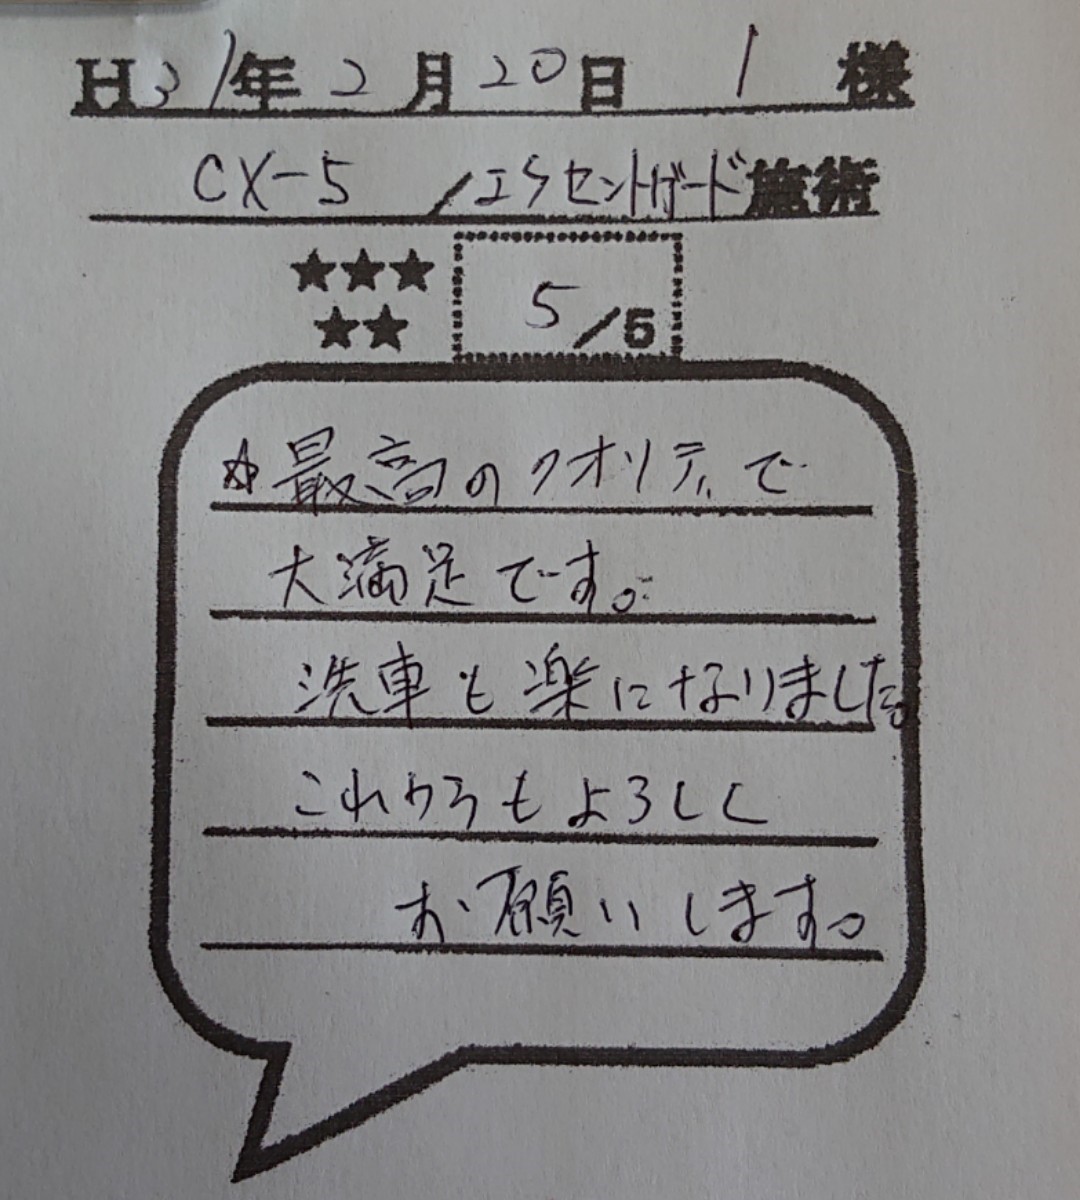 H31年2月20日 I 様
CX-5 /エシセントガード施術
★★★
★★
5/5
☆最高のクオリティで
大満足です。
洗車も楽になりました。
これからもよろしく
お願いします。